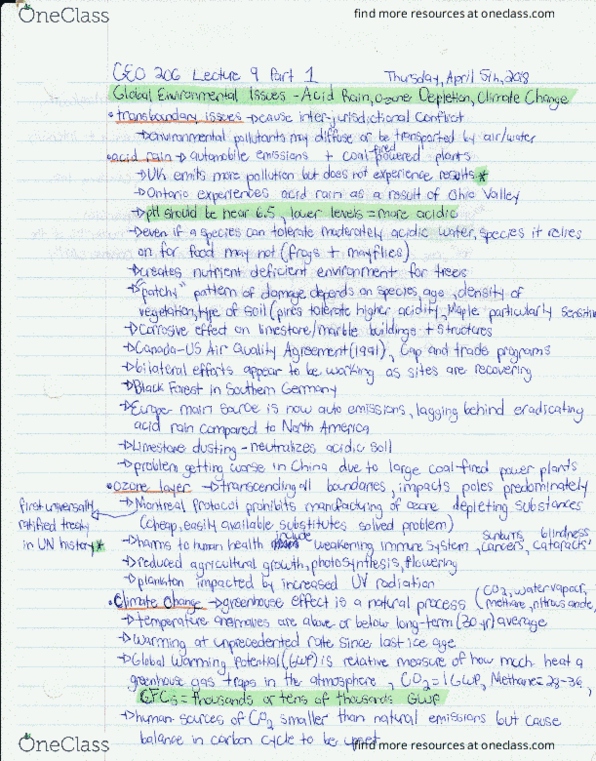 OneClass
find more resources at oneclass.com
GEO 206 Lecture 9 Part 1 Thursday, April 5th, 2018
Global Environmental Issues - Acid Rain, Ozone Depletion, Climate Change
• transboundary issues → cause inter-jurisdictional conflict
→ environmental pollutants may diffuse or be transported by air/water
• acid rain → automobile emissions + coal-fired powered plants
→ UK emits more pollution but does not experience results *
→ Ontario experiences acid rain as a result of Ohio Valley
→ pH should be near 6.5, lower levels = more acidic
→ even if a species can tolerate moderately acidic water, species it relies
on for food may not (frogs + mayflies)
→ creates nutrient deficient environment for trees
→ "patchy" pattern of damage depends on species, age, density of
vegetation, type of soil (pines tolerate higher acidity, Maple particularly sensitive
→ Corrosive effect on limestone/marble buildings + structures
→ Canada-US Air Quality Agreement (1991), Cap and trade programs
→ bilateral efforts appear to be working as sites are recovering
→ Black Forest in Southern Germany
→ Europe main source is now auto emissions, lagging behind eradicating
acid rain compared to North America
→ Limestone dusting - neutralizes acidic soil
→ problem getting worse in China due to large coal-fired power plants
• ozone layer → transcending all boundaries, impacts poles predominately
→ Montreal Protocol prohibits manufacturing of ozone depleting substances
(cheap, easily available substitutes solved problem)
First universally
ratified treaty
in UN history *
→ harms to human health include weakening immune system, sunburns, cancers, cataracts, blindness
→ reduced agricultural growth, photosynthesis, flowering
→ plankton impacted by increased UV radiation
• Climate Change → greenhouse effect is a natural process (CO2, water vapour,
methane, nitrous oxide,
→ temperature anomalies are above or below long-term (30 yr) average
→ Warming at unprecedented rate since last ice age
→ Global Warming Potential (GWP) is relative measure of how much heat a
greenhouse gas traps in the atmosphere, CO2 = 1 GWP, Methane = 28-36,
CFCs = thousands or tens of thousands GWP
→ human sources of CO2 smaller than natural emissions but cause
balance in carbon cycle to be upset
OneClass
find more resources at oneclass.com